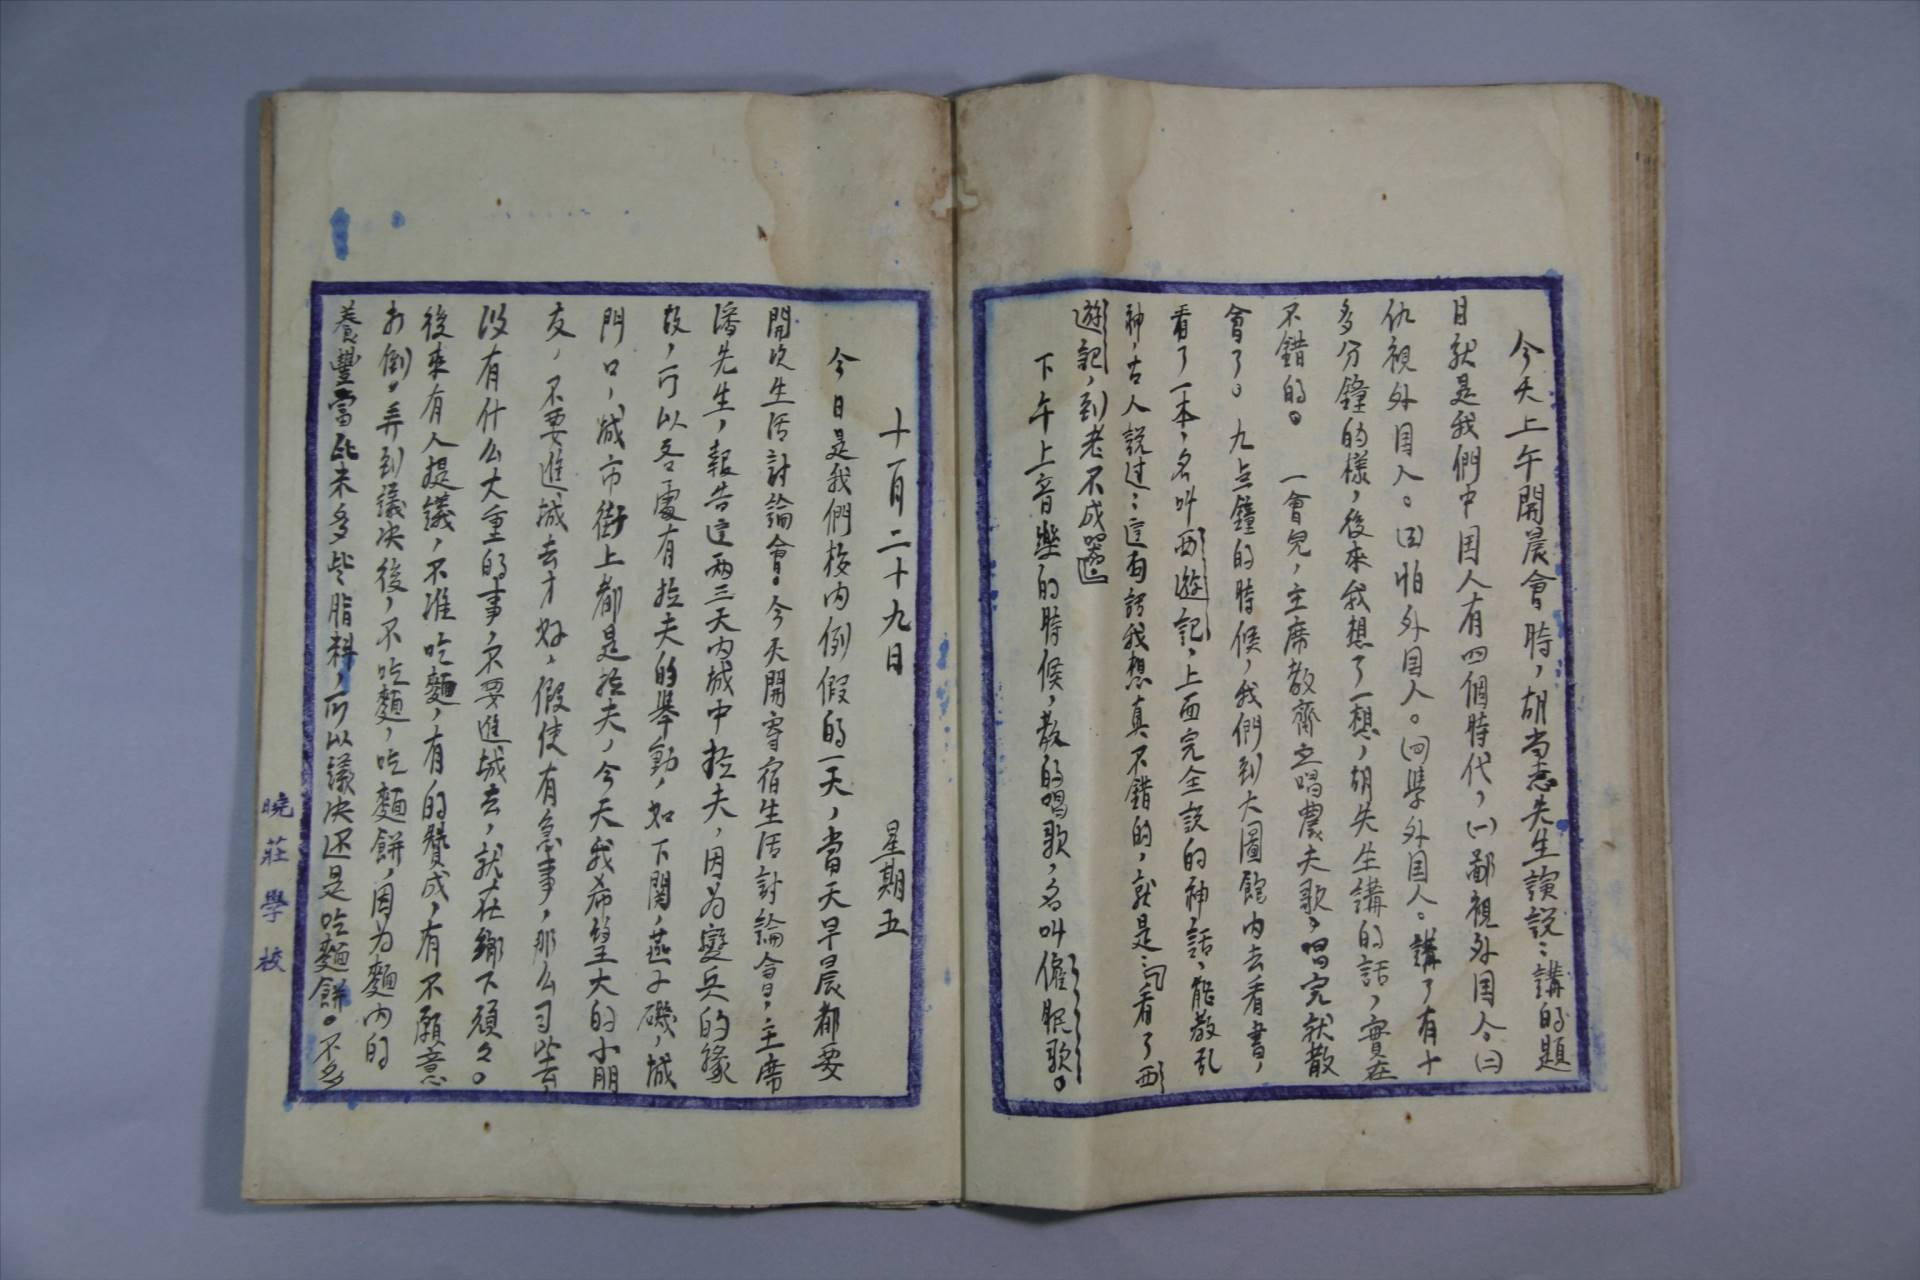 今天上午開晨會時，胡尚志先生演説：講的題
目就是我們中国人有四個時代，㈠鄙視外国人。㈡
仇視外国人。㈢怕外国人。㈣學外国人。講了有十
多分鐘的樣，後來我想了一想，胡先生講的話，實在
不錯的。　一會兒，主席教齊之唱農夫歌，唱完就散
會了。九点鐘的時候，我們到大圖館内去看書，
看了一本，名叫西遊記，上面完全説的神話，能散乱
神，古人説过：這両話我想真不錯的，就是：看了西
遊記，到老不成器
下午上音樂的時候，教的唱歌，名叫催眠歌。
十一月二十九日　星期五
今日是我們校内例假的一天，當天早晨都要
開次生活討論會。今天開寄宿生活討論會，主席
潘先生，報告這两三天内城中拉夫，因為變兵的緣
故，可以各處有拉夫的舉動，如下関，燕子磯，城
門口，城市街上都是拉夫，今天我希望大的小朋
友，不要進城去才好，假使有急事，那么可以去
没有什么大重的事，不要進城去，就在鄉下頑々。
後來有人提議，不准吃麵，有的贊成，有不願意
打倒。弄到議决後，不吃麵，吃麵餅，因为麵内的
養豐富比未多些脂料，所以議决还是吃麵餅。不多
曉莊學校